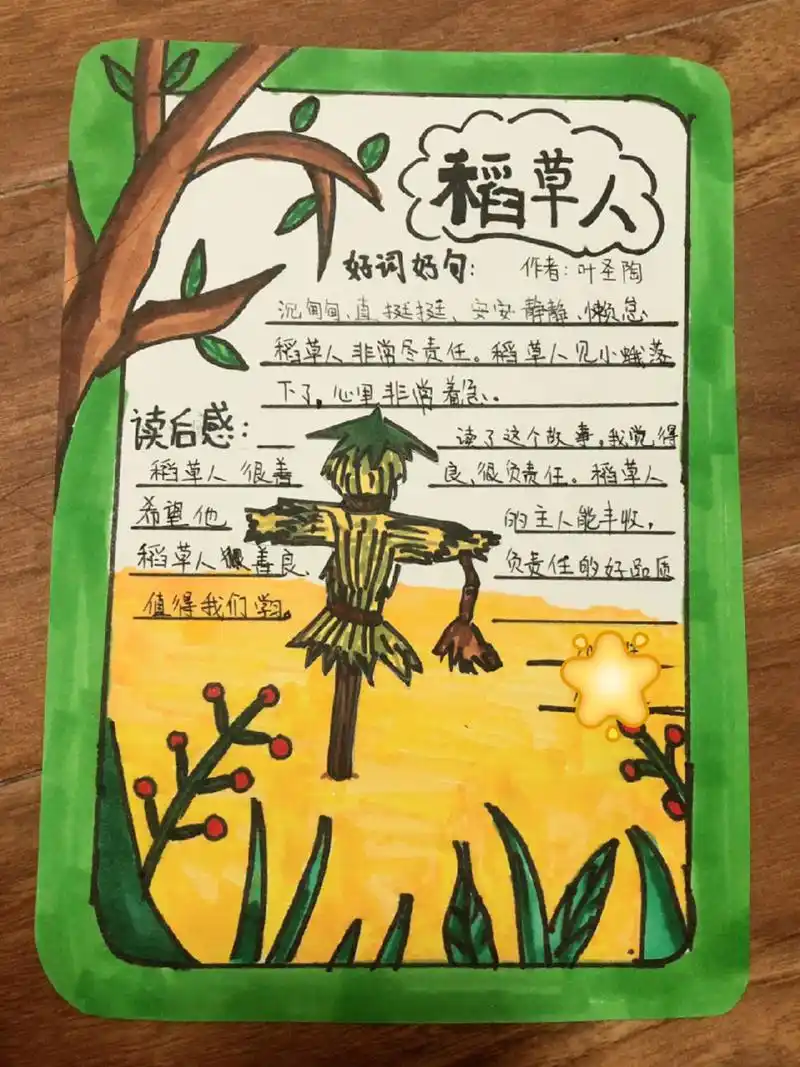 稻草人
好词好句：
作者：叶圣陶
沉甸甸、直挺挺、安安静静、懒怠
稻草人非常尽责任。稻草人见小蛾落
下了，心里非常着急。
读后感：
读了这个故事，我觉得
稻草人很善良，很负责任。稻草人
希望他的主人能丰收，
稻草人很善良负责任的好品质
值得我们学习。